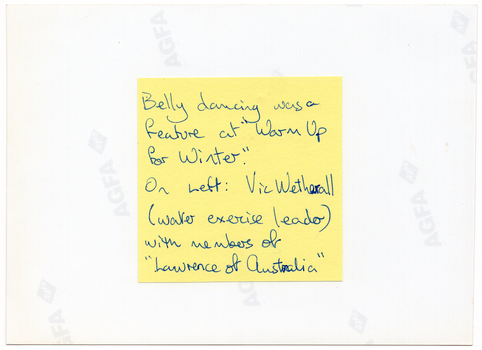 AGFA
AGFA
Belly dancing was a
feature at "Warm Up
for Winter."
On Left: Vic Wetherall
(water exercise leader)
with members of
"Lawrence of Australia"
AGFA
AGFA
AGFA
AGFA